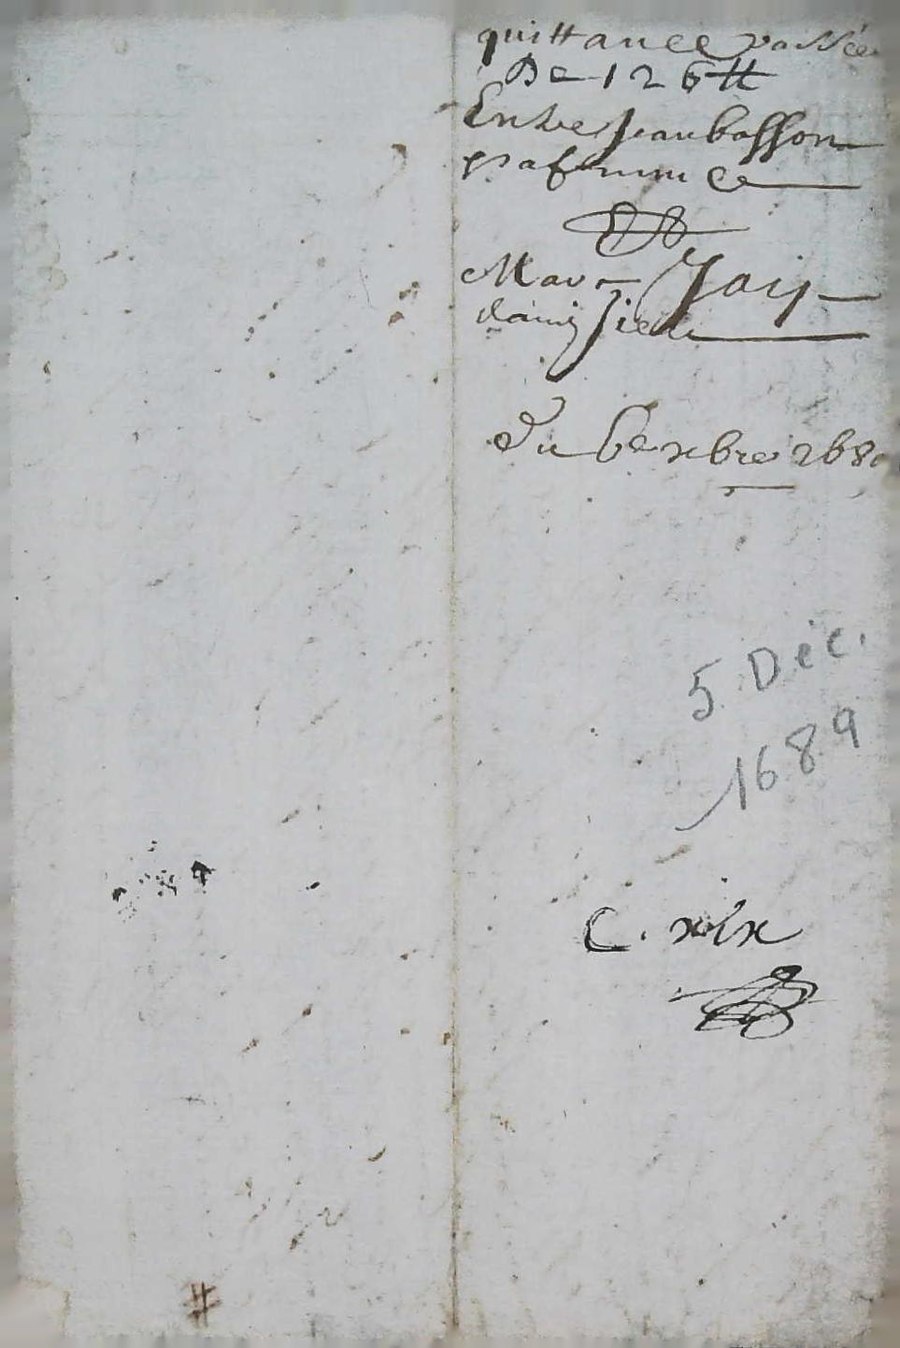 quittance passée
De 126 ₶
Entre Jean bosson
& sa femme
Marc Jay
damzieu
du 6e xbre 1689
5 Déc.
1689
C. xix
#